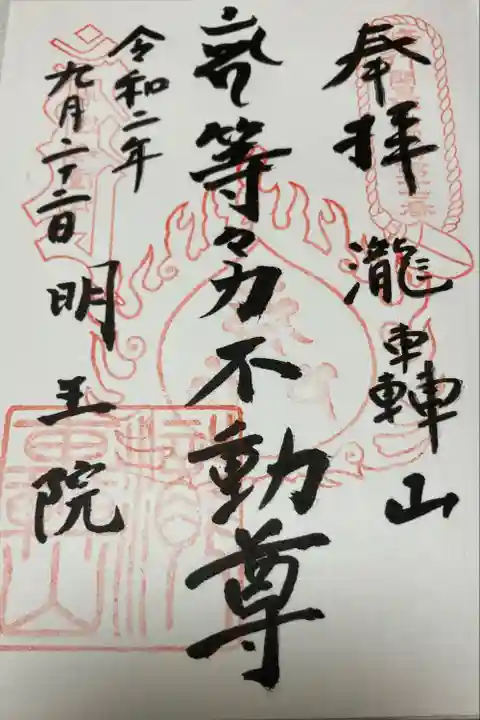 奉拝
瀧轟山
等々力不動尊
令和二年
九月二十二日
明王院